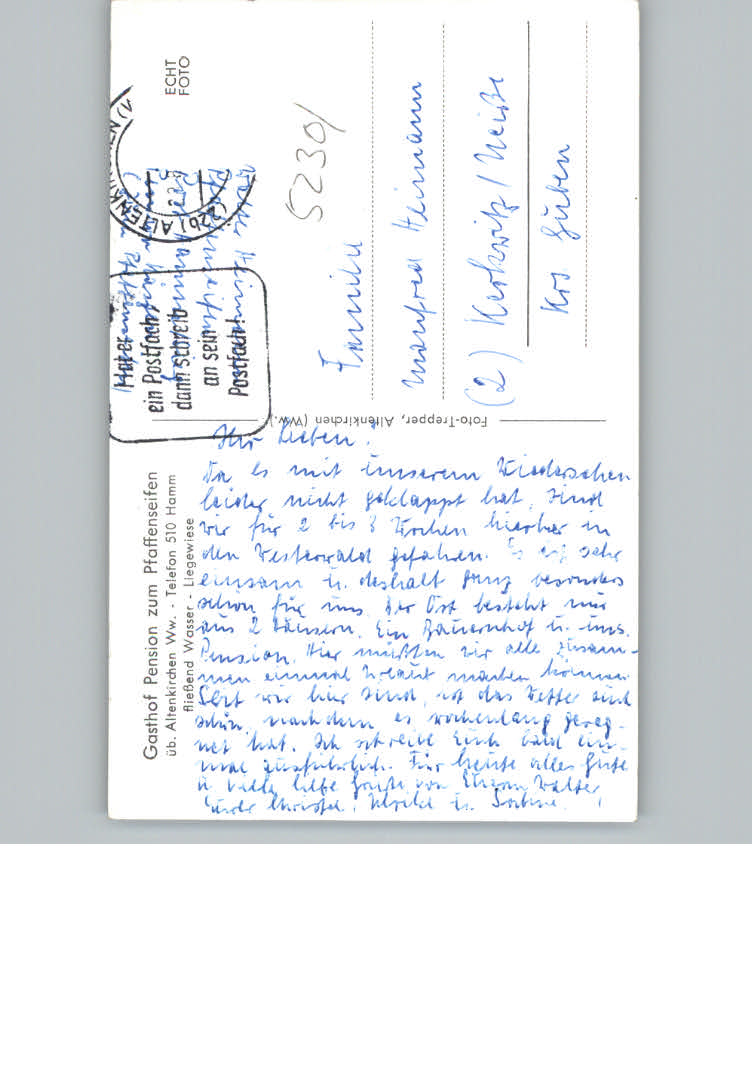 Gasthof Pension zum Pfaffenseifen
üb. Altenkirchen Ww. - Telefon 510 Hamm
fließend Wasser - Liegewiese
Ihr Lieben!
Da es mit unserem Wiedersehen
leider nicht geklappt hat, sind
wir für 2 bis 3 Wochen hierher in
den Westerwald gefahren. Es ist sehr
einsam u. deshalb ganz besonders
schön für uns. Der Ort besteht nur
aus 2 Häusern. Ein Bauernhof u. uns.
Pension. Hier müßten wir alle zusam-
men einmal Urlaub machen können.
Seit wir hier sind, ist das Wetter auch
schön, nachdem es wochenlang gereg-
net hat. Ich schreibe Euch bald ein-
mal ausführlich. Für heute alles Gute
u. viele liebe Grüße von Eurem Walter
Christel, u.
Foto-Trepper, Altenkirchen (Ww.)
ECHT
FOTO
ALTENKIRCHEN
Hat er
ein Postfach,
dann schreib
an sein
Postfach!
5230
Familie
Manfred Heimann
(2) Kerkwitz / Neiße
Krs. Guben